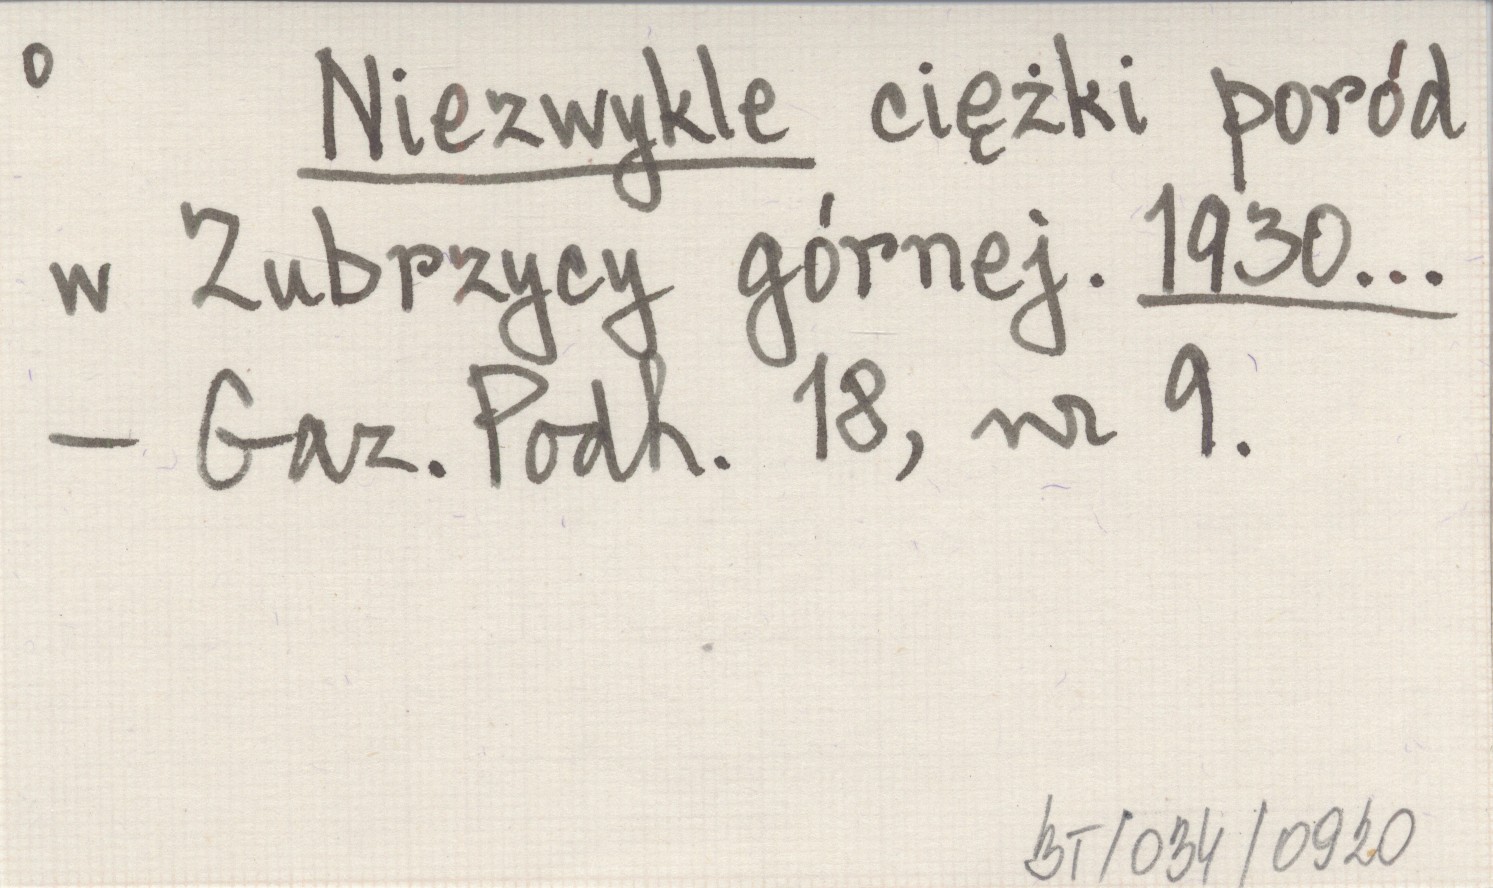 o Niezwykle ciężki poród
w Zubrzycy górnej. 1930...
— Gaz. Podh. 18, nr 9.
BT/034/0920